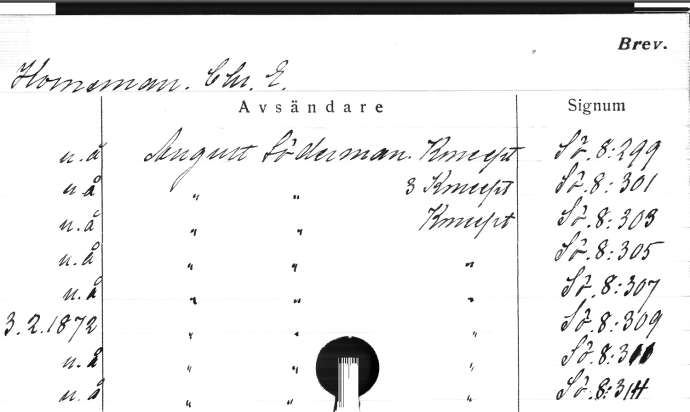 Brev.
Hornsman. Chr. E.
Avsändare Signum
u.å August Söderman. Koncept Sö. 8:299
u.å " " 3 Koncept Sö. 8:301
u.å " " Koncept Sö. 8:303
u.å " " " Sö. 8:305
u.å " " " Sö. 8:307
3.2.1872 " " " Sö. 8:309
u.å " " " Sö. 8:311
u.å " " " Sö. 8:314